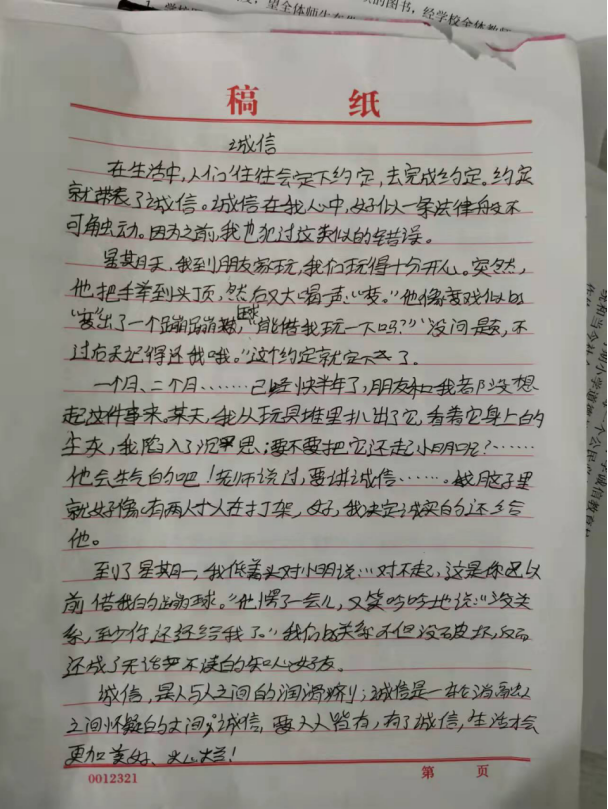 望全体师生
的图书，经学校全体教师
稿 纸
诚信
在生活中，人们往往会定下约定，去完成约定。约定
就带表了诚信。诚信在我心中，好似一条法律般不
可触动。因为之前，我也犯过这类似的错误。
星期天，我到朋友家玩，我们玩得十分开心。突然，
他把手举到头顶，然后又大喝一声：“变。”他像变戏似的
“变”出了一个蹦蹦球，“能借我玩一下吗？”“没问题，不
过后天记得还我哦。”这个约定就定下了。
一个月、二个月……已经快半年了，朋友和我都没想
起这件事来。某天，我从玩具堆里扒出了它，看着它身上的
尘灰，我陷入了沉思：要不要把它还走小明呢？……
他会生气的吧！老师说过，要讲诚信……。我脑子里
就好像有两人才人在打架，好，我决定诚实的还给
他。
到了星期一，我低着头对小明说：“对不起，这是你以
前借我的蹦球。”他愣了一会儿，又笑吟吟地说：“没关
系，至少你还还给我了。”我们的关系不但没破坏，反而
还成了无话不谈的知心好友。
诚信，是人与人之间的润滑剂；诚信是一
之间怀疑的；诚信，要人人皆有，有了诚信，生活才会
更加美好、火烂！
0012321
第 页